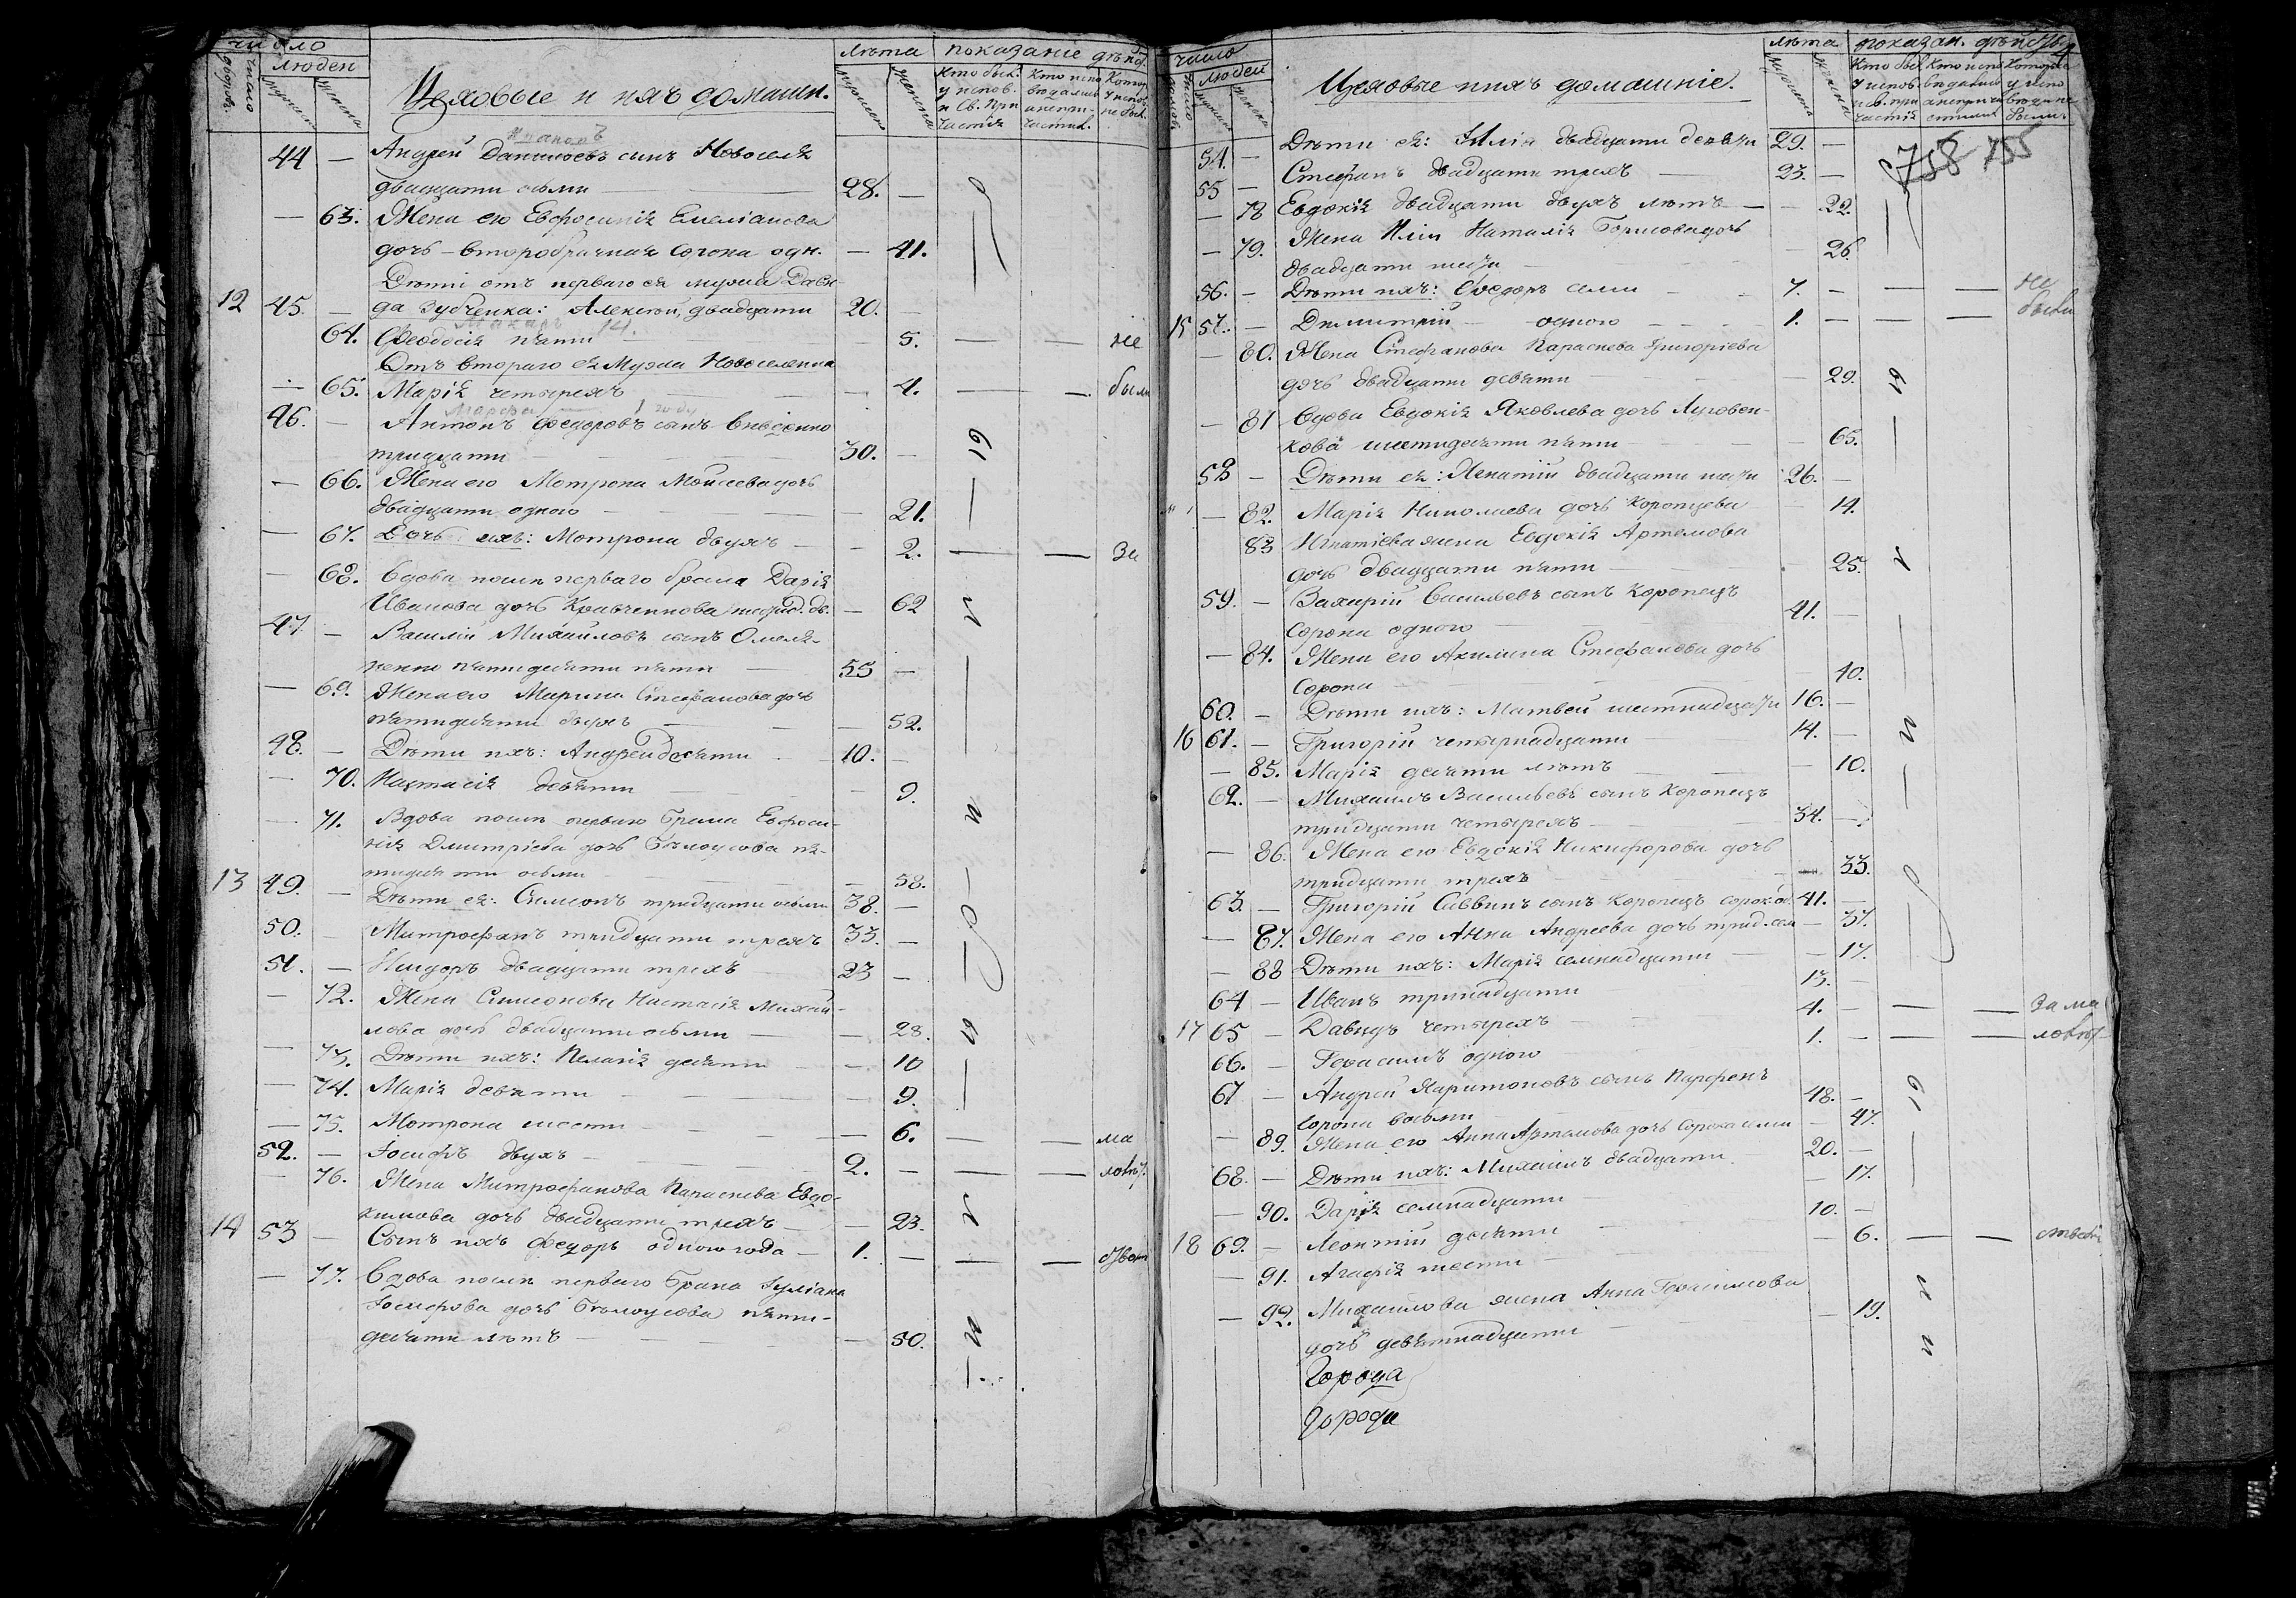 число
людей
Число дворовъ
мужеск
женска
Цеховые и ихъ домашн.
лѣта
мужеск
женска
показаніе дѣйст
Кто был. у испов. и Св. При частія
Кто испо ведался а непри частил.
Котор у испов не был.
Ивановъ
44 — Андрей Даниловъ сынъ Новоселя
двадцати осьми — 28. —
— 63. Жена его Евфросинія Емеліанова
дочь – второбрачная сорока одн. — 41.
Дѣти отъ перваго ея мужа Дави
12 45. — да Зубченка: Алексѣй, двадцати 20. —
Макаръ 14.
64. Феодосія пяти 5. — — не
Отъ втораго ея мужа Новоселенка
— 65. Марія четырехъ — 4. — — были
Марфа 1 году
46. — Антонъ Федоровъ сынъ
тридцати 30. —
— 66. Жена его Мотрона Мойсеева дочь
двадцати одного — 21.
— 67. Дочь ихъ: Мотрона двухъ — 2. — — За
— 68. Вдова посля перваго брата Дарія
Иванова дочь Кравченкова шестд. дв. — 62
47 — Василій Михайловъ сынъ Омеля-
ненко пятидесяти пяти — 55 —
— 69. Жена его Марина Стефанова дочь
пятидесяти двухъ — 52.
48. — Дѣти ихъ: Андрей десяти — 10. —
— 70. Настасія девяти — 9.
— 71. Вдова посля перваго брата Евфроси-
нія Дмитріева дочь Бѣлоусова пя-
тидесяти осьми — 58.
13 49. — Дѣти ея: Симеонъ тридцати осьми 38. —
50. Митрофанъ тридцати трехъ 33. —
51. — двадцати трехъ 23 —
— 72. Жена Симеонова Настасія Михай-
лова дочь двадцати осьми — 28.
— 73. Дѣти ихъ: Пелагія десяти — 10
— 74. Марія девяти — 9.
— 75. Мотрона шести — 6. — — ма
52. — Іосифъ двухъ — 2. — — — ловѣт.
— 76. Жена Митрофанова Параскева Евдо-
кимова дочь двадцати трехъ — 23.
14 53 — Сынъ ихъ Федоръ одного года — 1. — — —
— 77. Вдова посля перваго брата Іуліана
Іосифова дочь Бѣлоусова пяти-
десяти лѣтъ — 50.
число
людей
Число дворовъ
мужеск
женска
Цеховые и ихъ домашніе.
лѣта
мужеска
женска
показан. дѣйст
Кто был у испов. и св. при частія
Кто испо ведался а непричастил
Которые у испо вѣди не были
758 755
54. — Дѣти ея: Илія двадцати девяти 29. —
55 — Стефанъ двадцати трехъ — 23. —
— 78 Евдокія двадцати двухъ лѣтъ — — 22.
— 79. Жена Иліи Наталія Борисова дочь
двадцати шести — 26.
56. — Дѣти ихъ: Феодоръ семи — 7. — — — не
15 57. — Димитрій — одного — 1. — — — были
— 80. Жена Стефанова Параскева Григоріева
дочь двадцати девяти — 29.
— 81 Вдова Евдокія Яковлева дочь Луговен-
кова шестидесяти пяти — 65.
58 — Дѣти ея: Игнатій двадцати шести 26. —
— 82. Марія Николаева дочь Коропцева — 14.
83 Игнатіева жена Евдокія Артемова
дочь двадцати пяти — 25.
59. — Захарій Васильевъ сынъ Коропецъ
сорока одного 41. —
— 84. Жена его Акилина Стефанова дочь
сорока 40.
60. — Дѣти ихъ: Матвей шестнадцати 16. —
16 61. — Григорій четырнадцати 14. —
— 85. Марія десяти лѣтъ — 10.
62. — Михаилъ Васильевъ сынъ Коропецъ
тридцати четырехъ — 34. —
— 86. Жена его Евдокія Никифорова дочь
тридцати трехъ — 33.
63. — Григорій Саввинъ сынъ Коропецъ сорок. од. 41. —
— 87. Жена его Анна Андреева дочь трид. сем — 37.
— 88 Дѣти ихъ: Марія семнадцати — 17.
64 — Иванъ тринадцати 13. —
17 65 — Давидъ четырехъ 4. — — — За ма
66. — Герасимъ одного 1. — — — ловѣт
67 — Андрей Харитоновъ сынъ Парфенъ
сорока восьми 48. —
— 89. Жена его Анна Артамова дочь сорока семи — 47.
68. — Дѣти ихъ: Михаилъ двадцати 20. —
— 90. Дарія семнадцати — 17.
18 69. — Леонтій десяти 10. —
— 91. Агафія шести — 6. — —
— 92. Михаилова жена Анна Герасимова
дочь девятнадцати — 19.
Города
Города